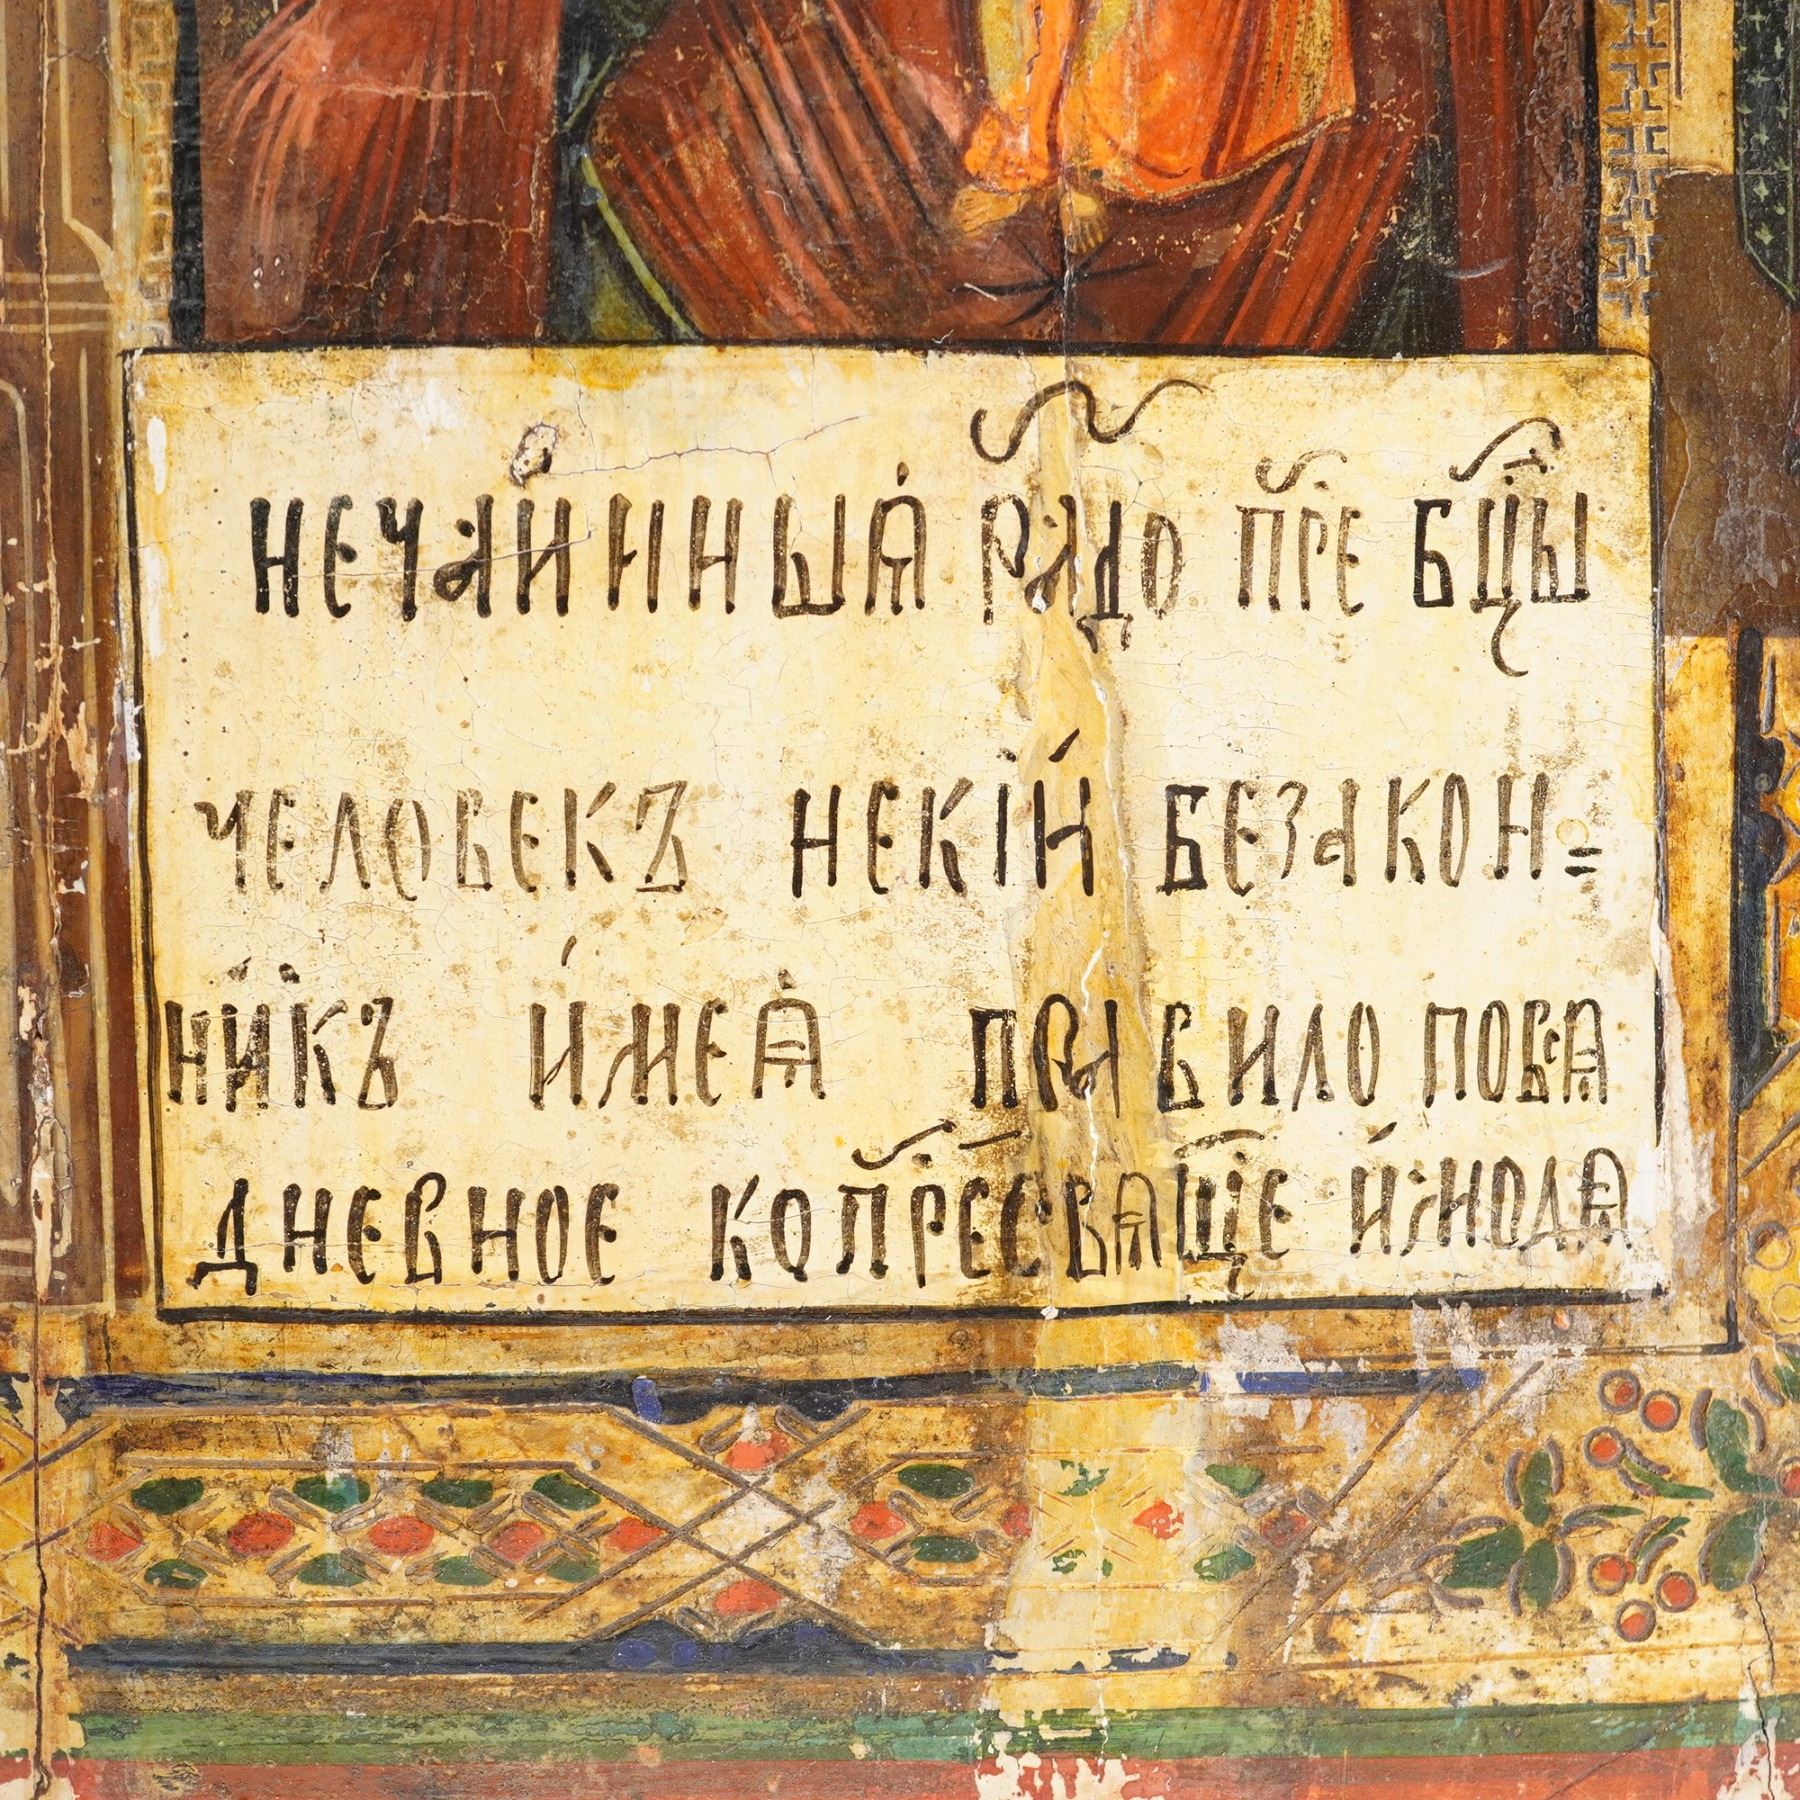 НЕЧАЙННЫѦ РАДО ПРЕ БЦЫ
ЧЕЛОВЕКЪ НЕКІЙ БЕЗАКОН=
НИКЪ ИМЕѦ ПРАВИЛО ПОВСѦ
ДНЕВНОЕ КОПРЕСВѦЩЕ